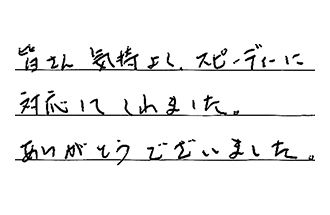 皆さん気持よく、スピーディーに
対応してくれました。
ありがとうございました。